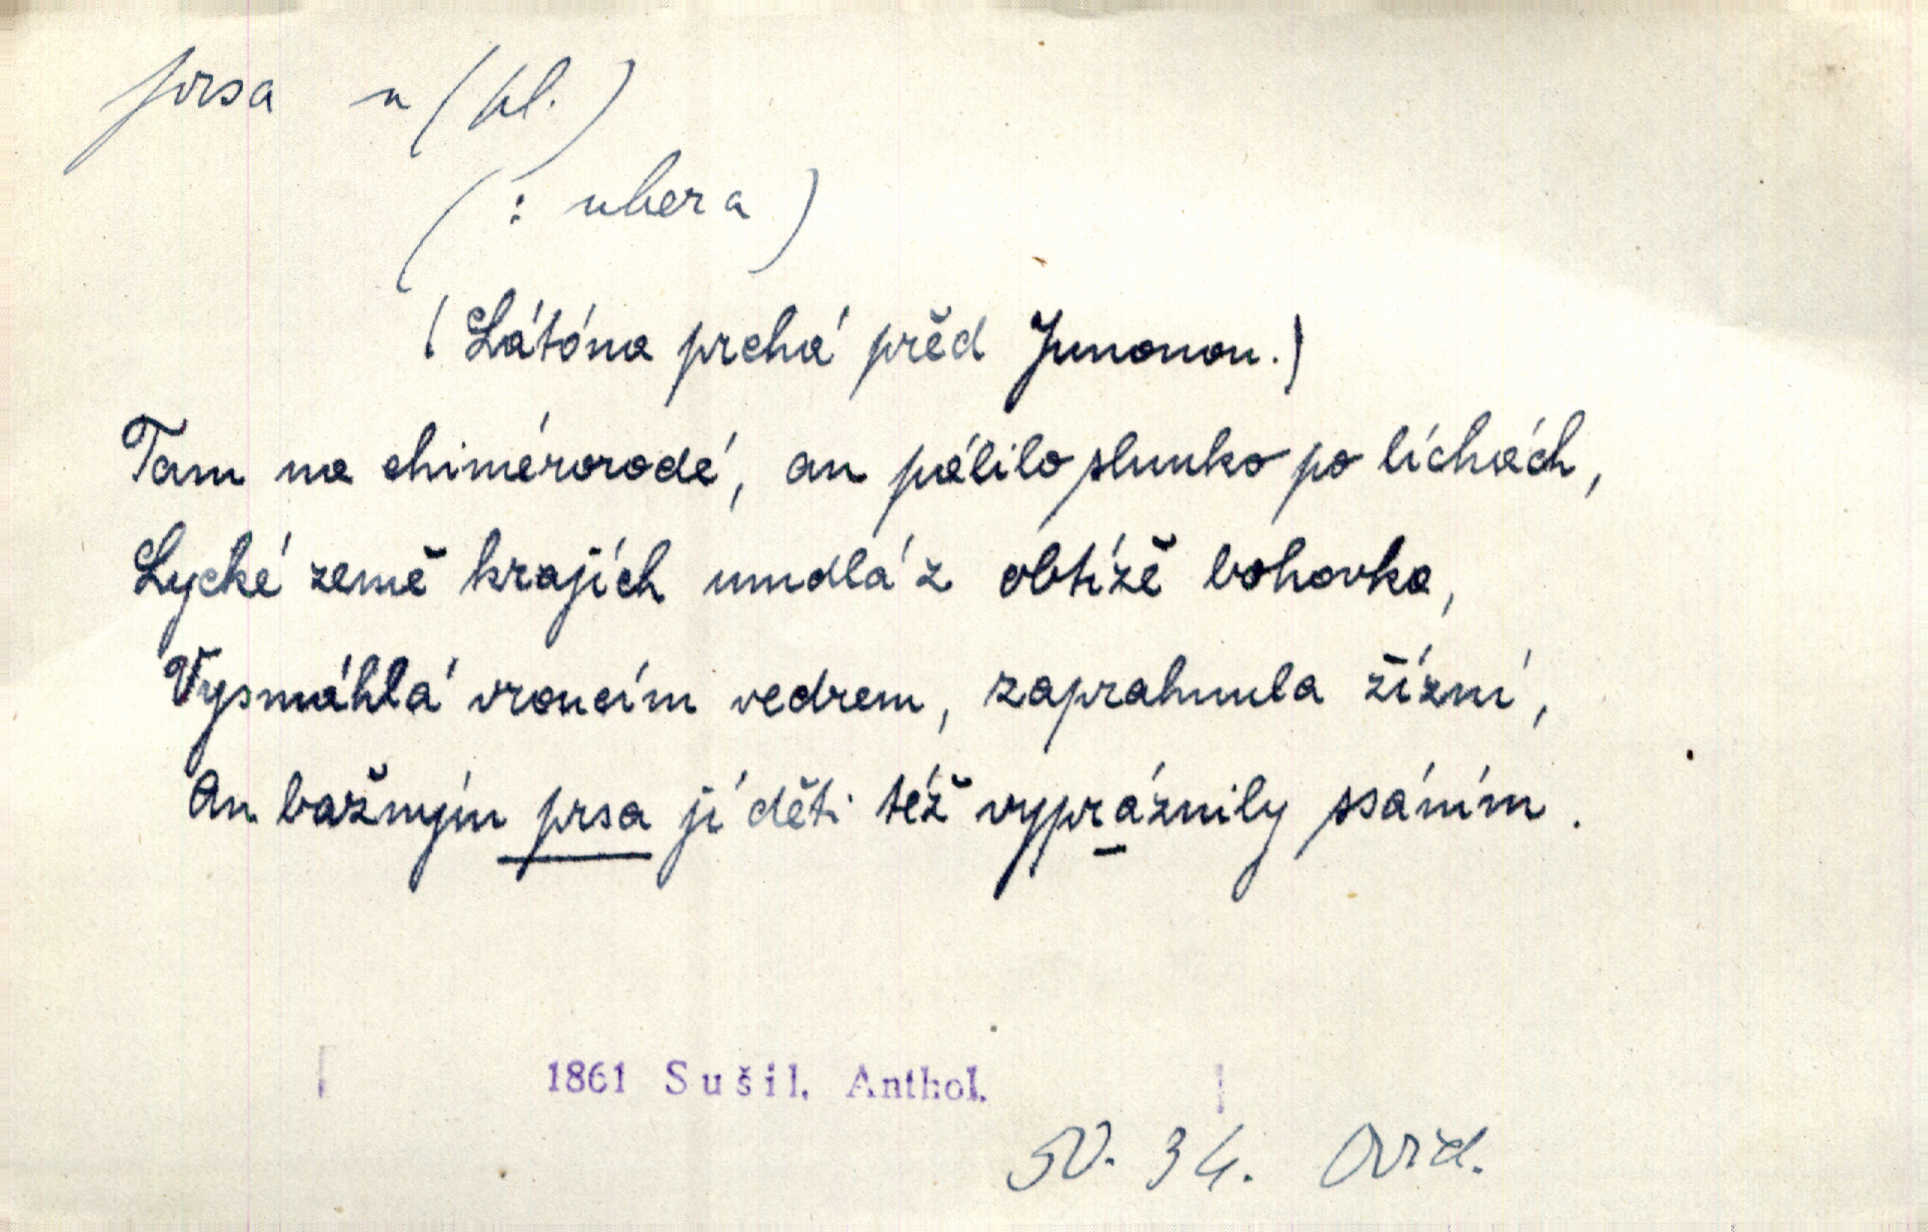 prsa n (pl.)
(: ubera)
(Látóna prchá přěd Junonou.)
Tam na chimérorodé, an pálilo slunko po líchách,
Lycké země krajích umdlá z obtížě bohovka,
Vysmáhlá vroucím vedrem, zaprahnula žízní,
An bažným prsa jí děti též vypráznily ssáním.
1861 Sušil, Anthol.
50. 34. Ovid.